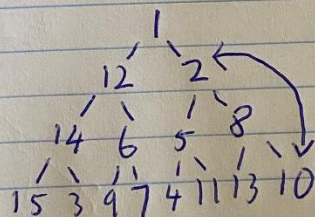 1
12 2
14 6 5 8
15 3 9 7 4 11 13 10